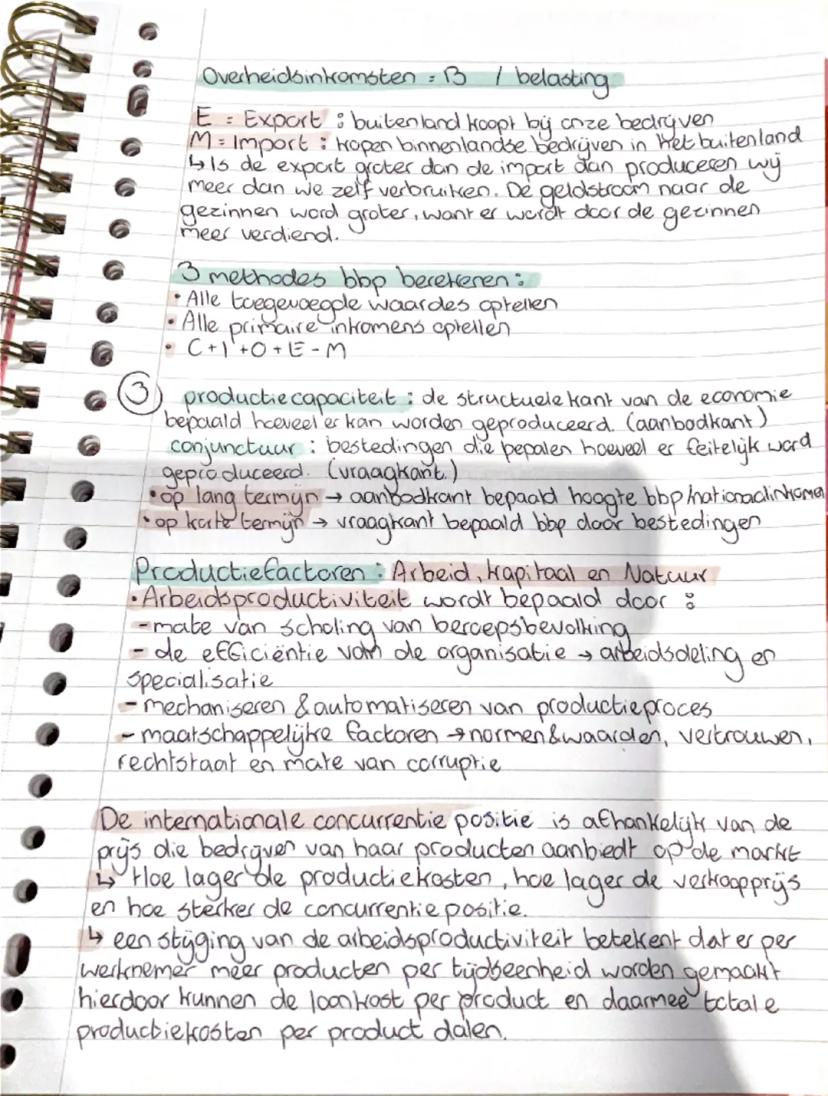 Overheidsinkomsten = B / belasting
E = Export : buitenland koopt bij onze bedrijven
M = Import : kopen binnenlandse bedrijven in het buitenland
↳ Is de export groter dan de import dan produceren wij
meer dan we zelf verbruiken. De geldstroom naar de
gezinnen word groter, want er wordt door de gezinnen
meer verdiend.
3 methodes bbp berekenen :
• Alle toegevoegde waardes optellen
• Alle primaire inkomens optellen
• C + I + O + E - M
③ productiecapaciteit : de structuele kant van de economie
bepaald hoeveel er kan worden geproduceerd. (aanbodkant)
conjunctuur : bestedingen die pepalen hoeveel er feitelijk word
geproduceerd. (vraagkant.)
• op lang termijn → aanbodkant bepaald hoogte bbp/nationaalinkomen
• op korte termijn → vraagkant bepaald bbp door bestedingen
Productiefactoren : Arbeid, kapitaal en Natuur
• Arbeidsproductiviteit wordt bepaald door :
- mate van scholing van beroepsbevolking
- de efficiëntie van de organisatie → arbeidsdeling en
specialisatie
- mechaniseren & automatiseren van productieproces
- maatschappelijke factoren → normen & waarden, vertrouwen,
rechtstaat en mate van corruptie
De internationale concurrentie positie is afhankelijk van de
prijs die bedrijven van haar producten aanbiedt op de markt
↳ Hoe lager de productiekosten, hoe lager de verkoopprijs
en hoe sterker de concurrentie positie.
↳ een stijging van de arbeidsproductiviteit betekent dat er per
werknemer meer producten per tijdseenheid worden gemaakt
hierdoor kunnen de loonkost per product en daarmee totale
productiekosten per product dalen.